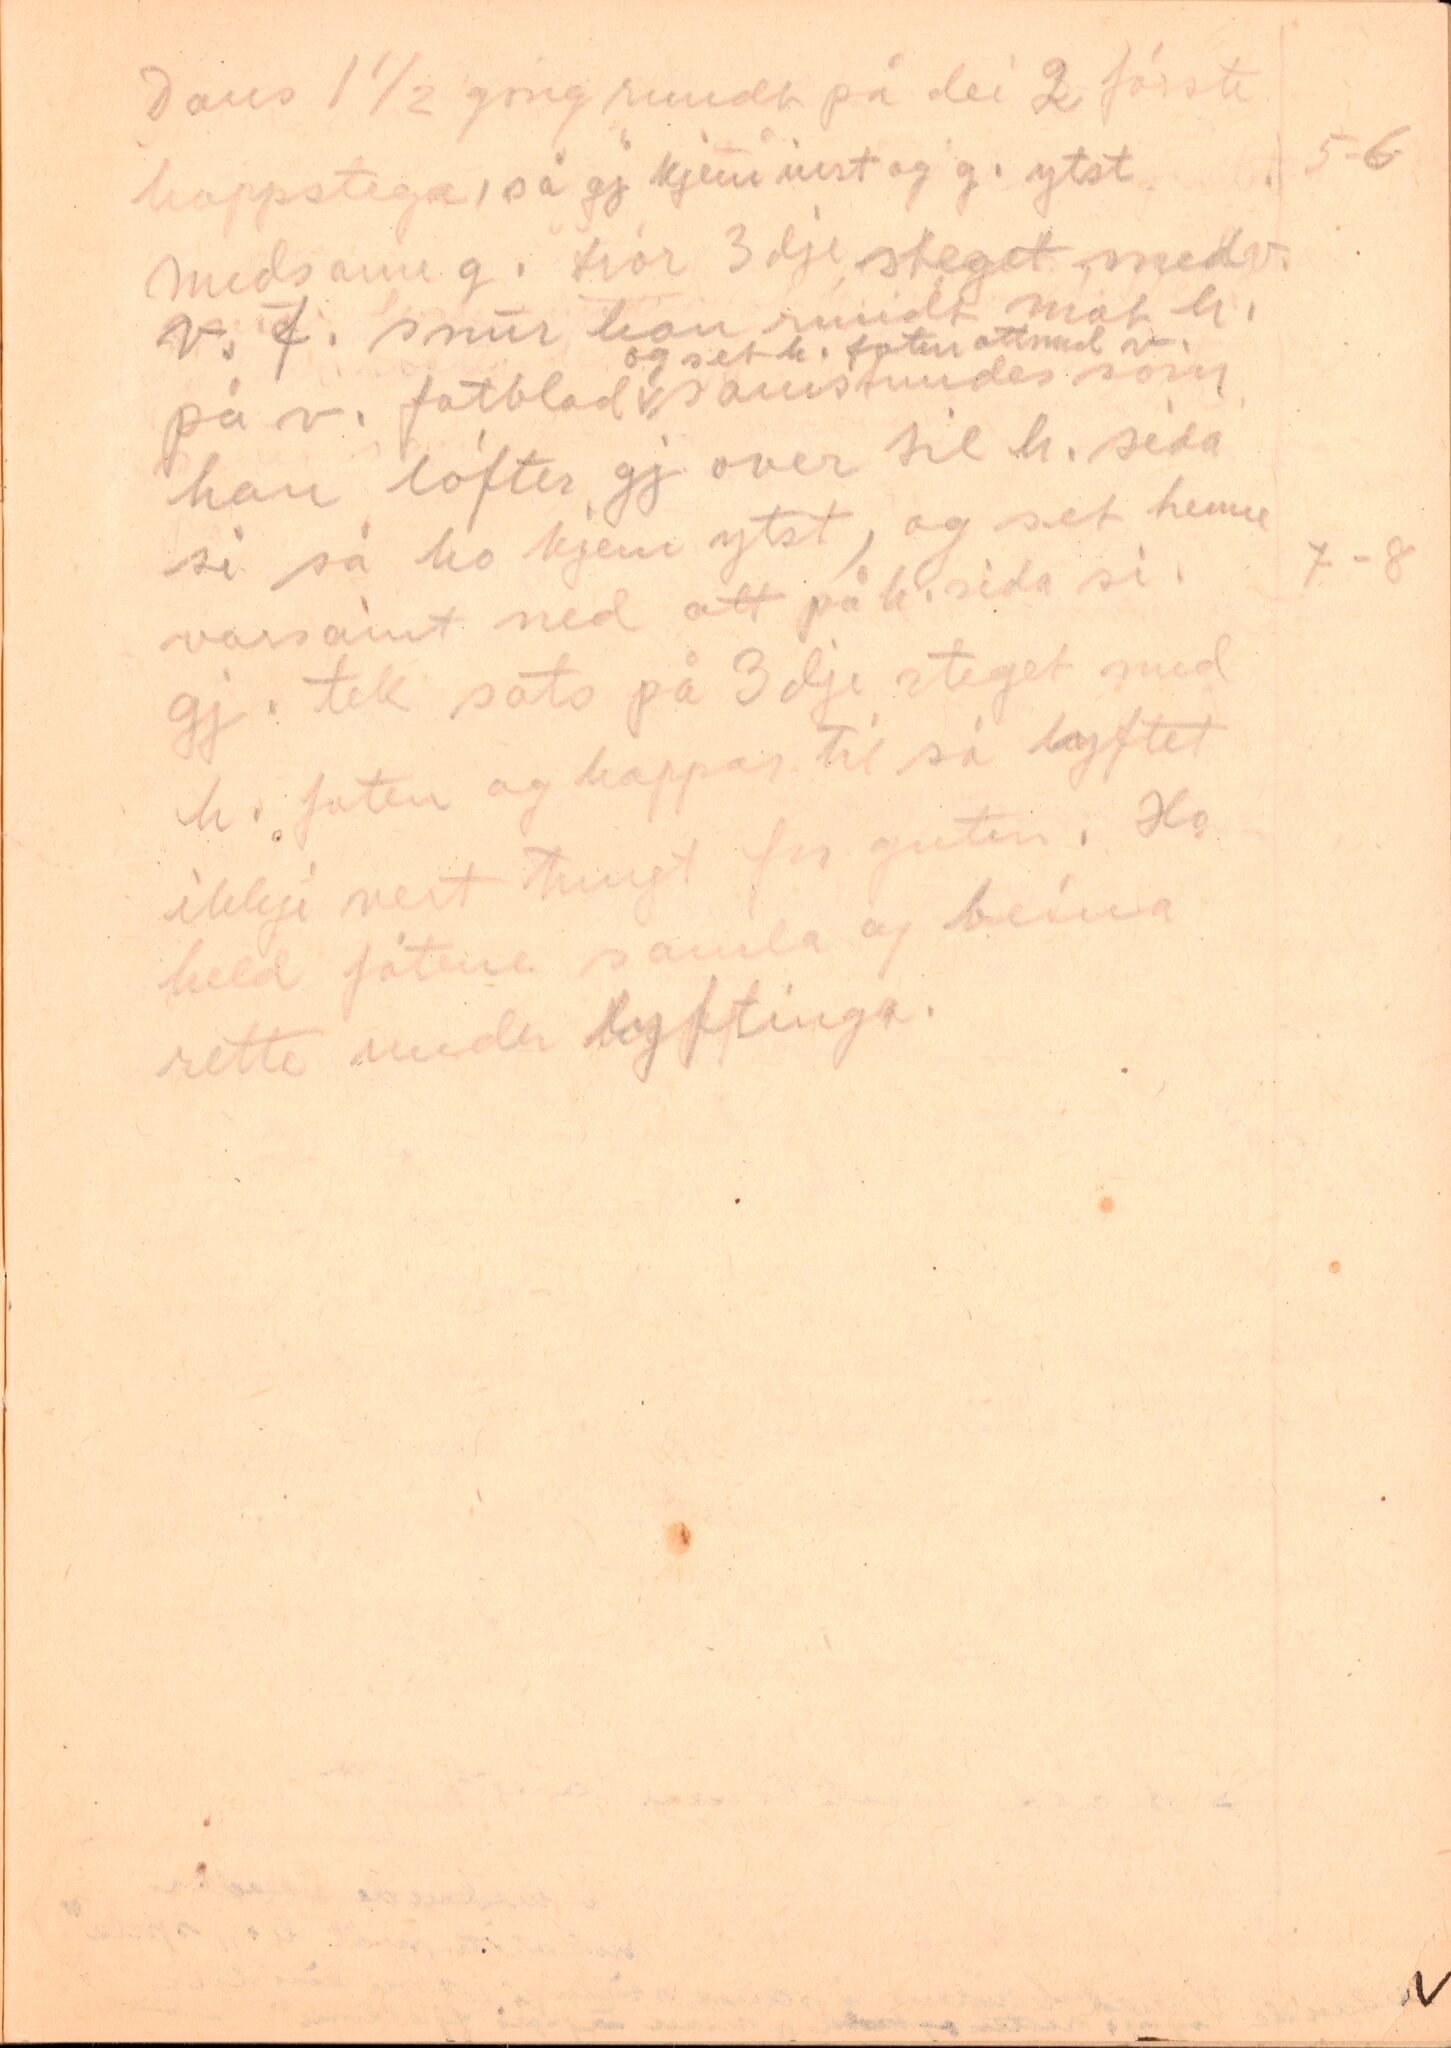 Dans 1 1/2 gong rundt på dei 2 fórste
hoppstega, så gj kjem inst og g. ytst 5-6
Medsame g. trór 3dje steget med v.
v. f. snur han rundt mot h.
og set h. foten attmed v.
på v. fotblad samstundes som
han lófter gj over til h. sida
si så ho kjem ytst, og set henne
varsamt ned att på h. sida si. 7-8
gj. tek sats på 3dje steget med
h. foten og hoppar til så lyftet
ikkje vert tungt for guten. Ho
held fótene samla og beina
rette under lyftinga.
V